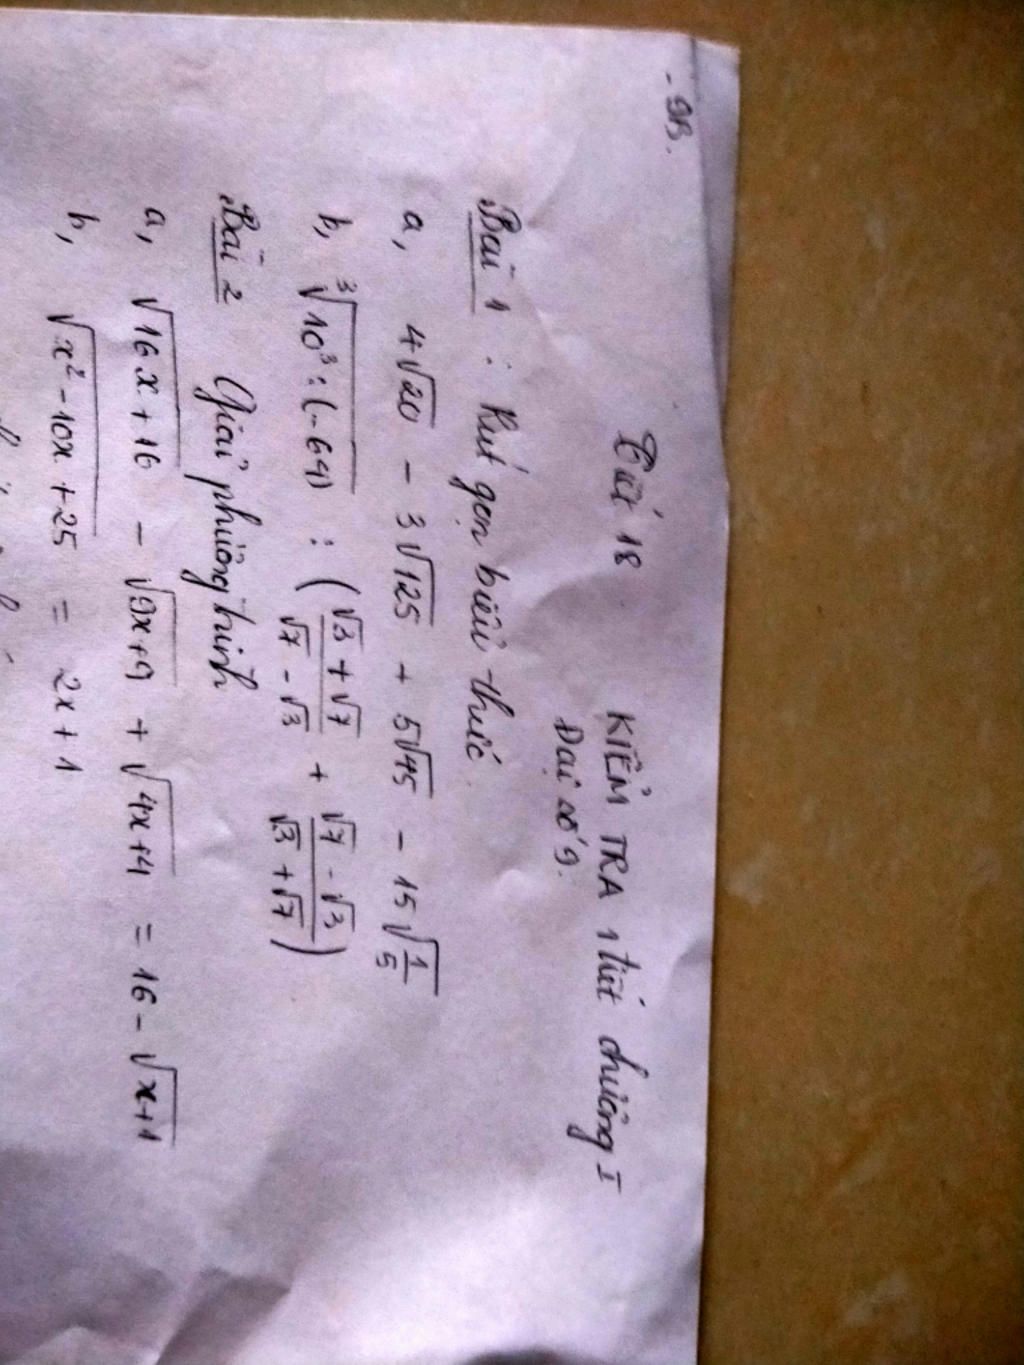 - 9B.
Tiết 18 KIỂM TRA 1 tiết chương I
Đại số 9.
Bài 1 : Rút gọn biểu thức.
a, 4√20 - 3√125 + 5√45 - 15√(1/5)
b, ∛(10³ : (-64)) : ((√3 + √7)/(√7 - √3) + (√7 - √3)/(√3 + √7))
Bài 2 Giải phương trình
a, √(16x + 16) - √(9x + 9) + √(4x + 4) = 16 - √(x + 1)
b, √(x² - 10x + 25) = 2x + 1